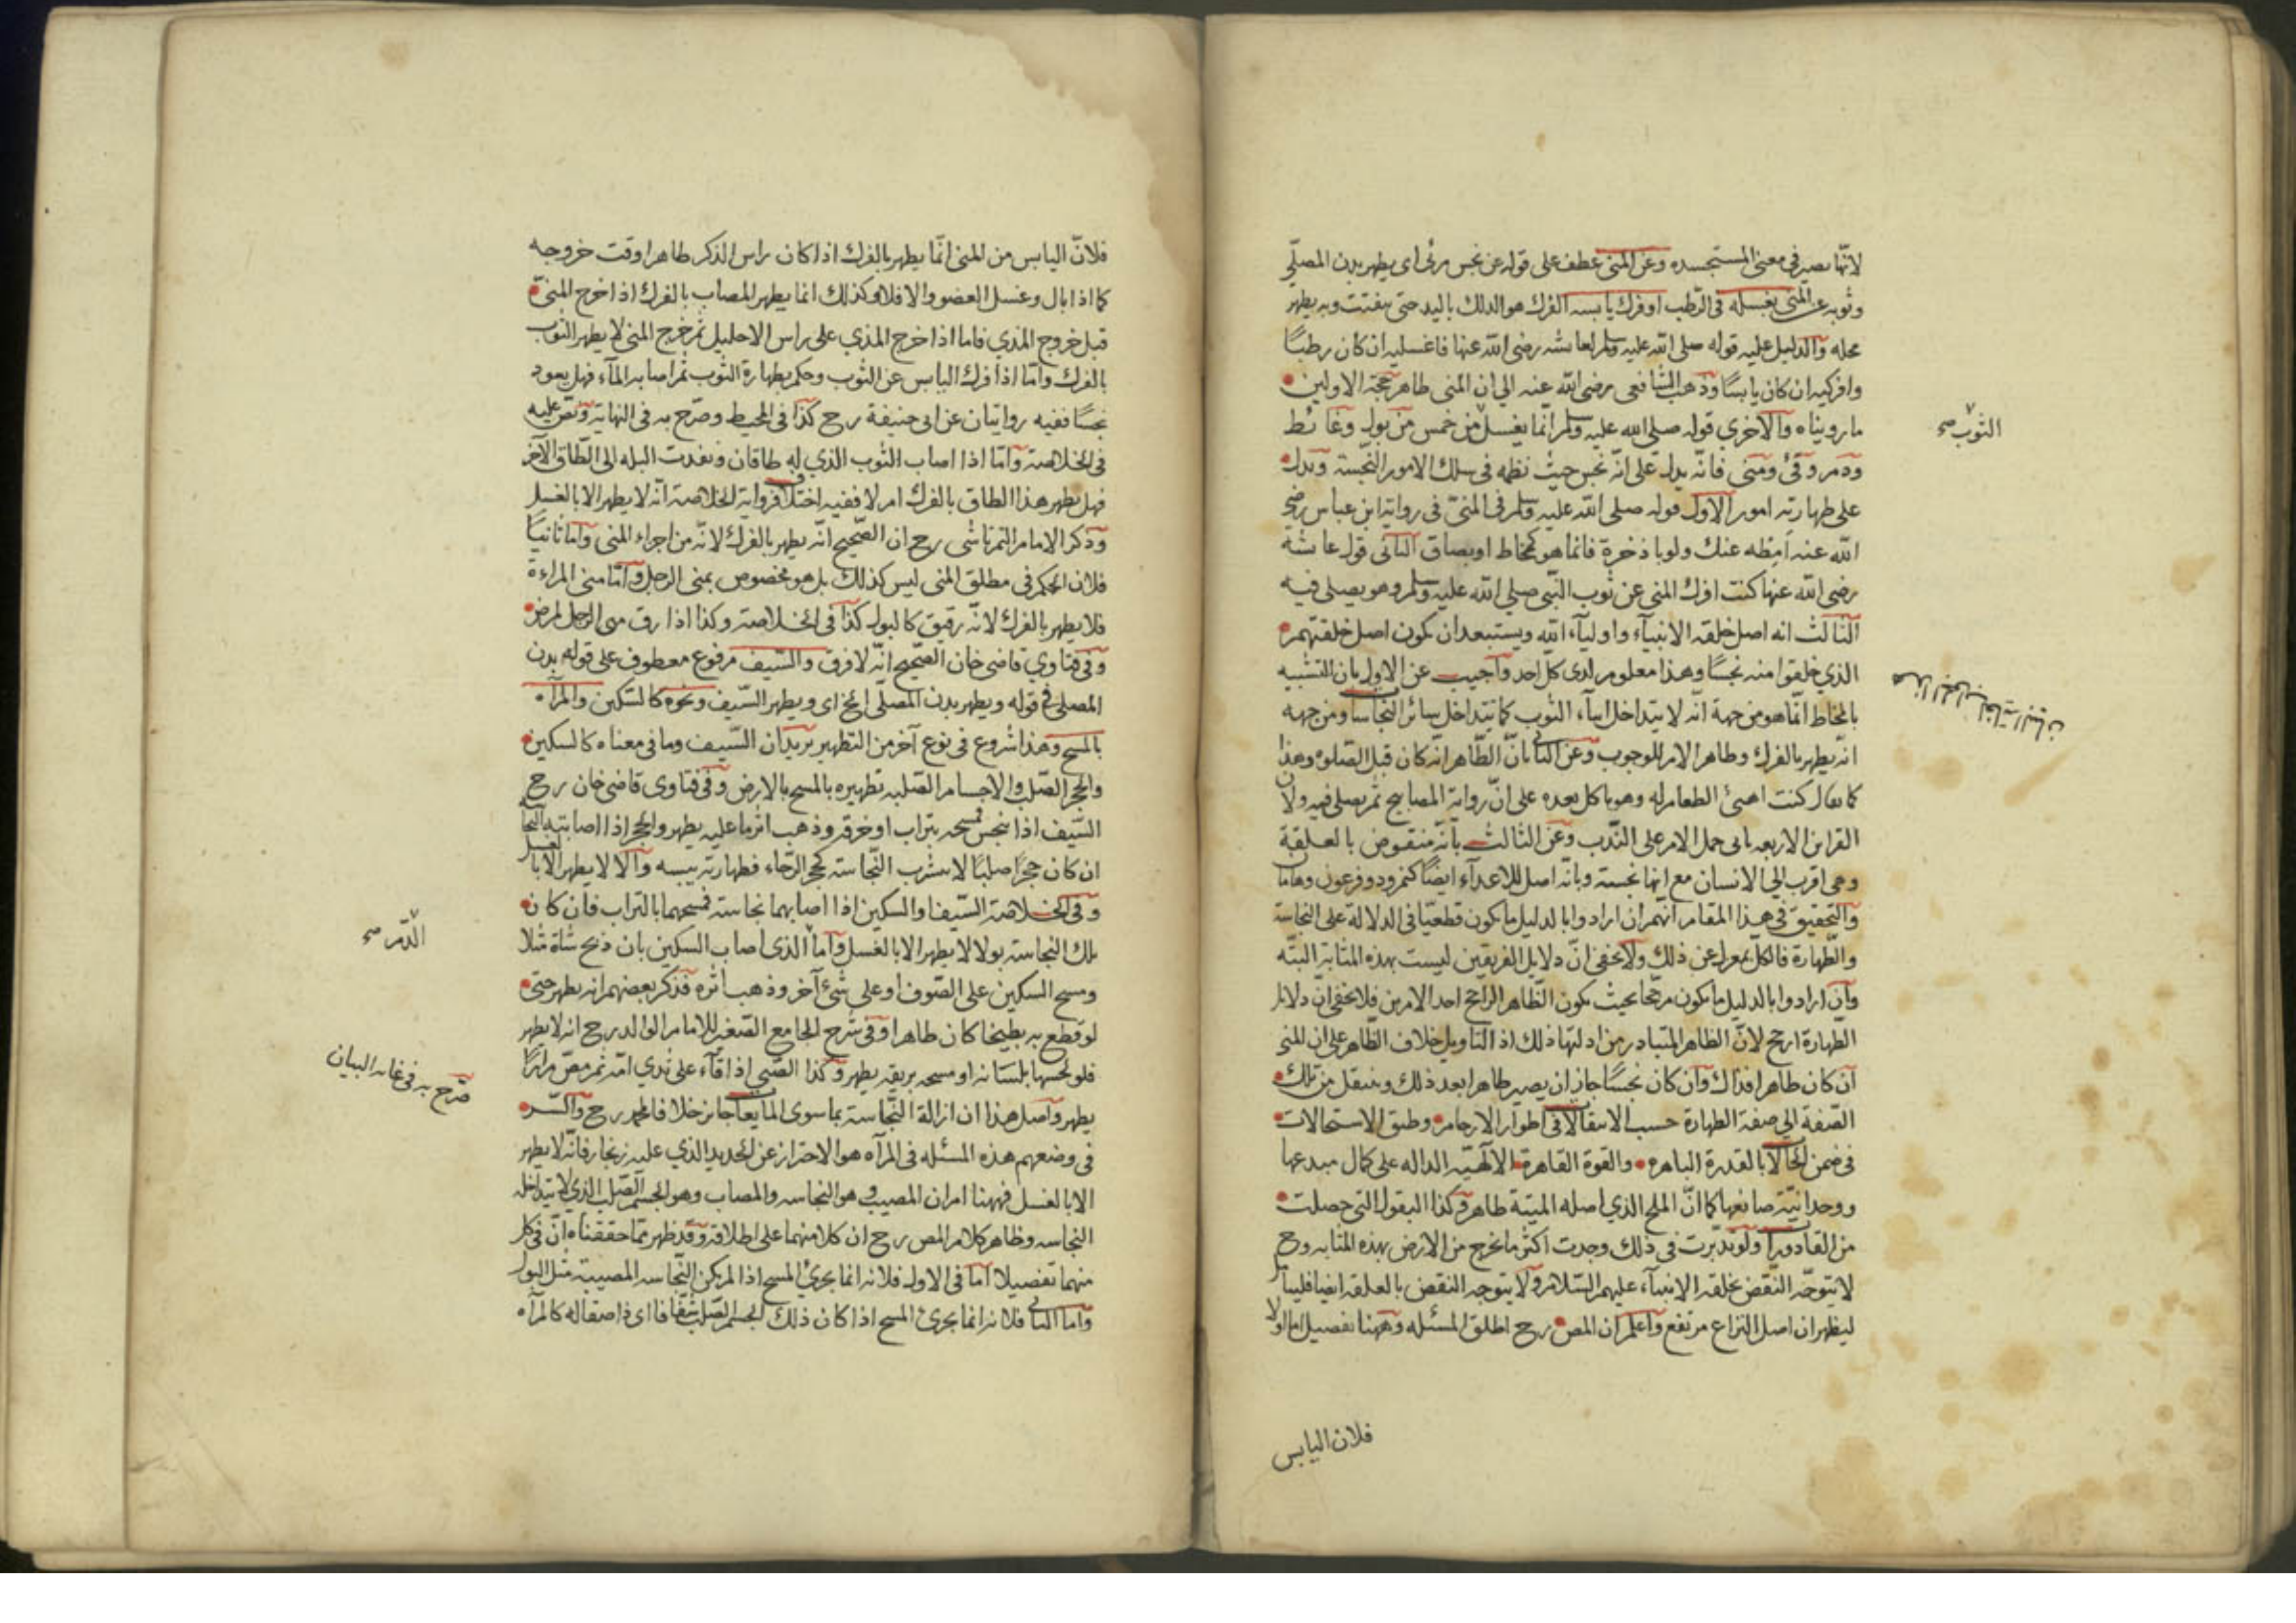 لانّها يصير في معنى المستجسده وعن المنى عطف على قوله عن نجس مرئى اى يطهر بدن المصلّي
وثوبه عن المنى بغسله فى الرّطب او فرك يابسه الفرك هو الدلك باليد حتى يتفتت وبه يطهر
محله والدليل عليه قوله صلى الله عليه وسلم لعائشه رضى الله عنها فاغسليه ان كان رطبًا
وافركيه ان كان يابسًا وذهب الشافعى رضى الله عنه الي ان المنى طاهر حجة الاولين
ما رويناه والاخري قوله صلى الله عليه وسلم انّما يغسل من خمس من بول وغائط
الثوب صح
ودم وقئ ومنى فانّه يدل على انّه نجس حيث نظمه في سلك الامور النجسة ويدل
على طهارته امور الاول قوله صلى الله عليه وسلم فى المنىّ فى رواية ابن عباس رضي
الله عنه امِطه عنك ولو باذخرة فانما هو كمخاط او بصاق الثانى قول عائشة
رضى الله عنها كنت افرك المنى عن ثوب النّبى صلي الله عليه وسلم وهو يصلى فيه
الثالث انه اصل خلقه الانبيآء واوليآء الله ويستبعد ان يكون اصل خلقتهم
الذي خلقوا منه نجسًا وهذا معلوم لدى كل احد واجيب عن الاول بان التشبيه
بالمخاط انّما هو من جهة انّه لا يتداخل اسآء الثوب كما يتداخل سائر النجاسا ومن جهه
انه يطهر بالفرك وظاهر الامر للوجوب وعن الثانى بانّ الظّاهر انّه كان قبل الصّلوه وهذا
كما يقال كنت اهيئ الطعام له وهو ياكل بعده على انّ رواية المصابيح ثم يصلى فيه ولان
القراين الاربعه يابى حمل الامر على النّدب وعن الثالث بانّه منقوض بالعلقة
وهى اقرب الي الانسان مع انها نجسة وبانّه اصل للاعدآء ايضًا كنمرود وفرعون وهامان
والتحقيق في هذا المقام انّهم ان ارادوا بالدليل ما يكون قطعيّا في الدلالة على النجاسة
والطّهارة فالكل بمعزل عن ذلك ولا يخفى انّ دلايل الفريقين ليست بهذه المثابة البتّه
وان ارادوا بالدليل ما يكون مرجّحا بحيث يكون الظّاهر الراجح احد الامرين فلا يخفى انّ دلايل
الطّهارة ارجح لانّ الظاهر المتبادر من ادلتها ذلك اذ التاويل خلاف الظّاهر على ان المنى
ان كان طاهرا فذاك وان كان نجسًا جاز ان يصير طاهرا بعد ذلك وينتقل من تلك
الصّفة الي صفة الطهارة حسب الانتقالا فى اطوار الارحام وطبق الاستحالات
فى ضمن الحالا بالقدرة الباهره والقوة القاهرة الالٓهيّه الداله على كمال مبدعها
ووحدانيّة صانعها كما انّ الملح الذي اصله الميتة طاهر وكذا البقول التى حصلت
من القاذورا ولو تدبّرت فى ذلك وجدت اكثر ما يخرج من الارض بهذه المثابه وح
لا يتوجّه النّقض بخلقه الانبيآء عليهم السّلام ولا يتوجه النقض بالعلقه ايضا فليتأمل
ليظهر ان اصل النزاع مرتفع واعلم ان المص رح اطلق المسئله وههنا تفصيل اما اولا
فلان اليابس
فلانّ اليابس من المنى انّما يطهر بالفرك اذا كان راس الذكر طاهرا وقت خروجه
كما اذا بال وغسل العضو والا فلا وكذلك انما يطهر المصاب بالفرك اذا خرج المنىّ
قبل خروج المذي فاما اذا خرج المذي على راس الاحليل ثم خرج المنى لا يطهر الثوب
بالفرك وامّا اذا فرك اليابس عن الثوب وحكم بطهارة الثوب ثم اصابه المآء فهل يعود
نجسًا ففيه روايتان عن ابى حنيفة رح كذا فى المحيط وصرّح به فى النهاية ونصّ عليه
فى الخلاصة وامّا اذا اصاب الثوب الذي له طاقان ونفذت البله الى الطّاق الآخر
فهل يطهر هذا الطاق بالفرك ام لا ففيه اختلاف فرواية الخلاصة انّه لا يطهر الا بالغسل
وذكر الامام التمرتاشى رح ان الصّحيح انّه يطهر بالفرك لانّه من اجزاء المنى واما ثانيًا
فلان الحكم فى مطلق المنى ليس كذلك بل هو مخصوص بمنى الرجل وامّا منى المراءة
فلا يطهر بالفرك لانّه رقيق كالبول كذا فى الخلاصة وكذا اذا رق منى الرجل لمرض
وفى فتاوي قاضى خان الصّحيح انّه لا فرق والسّيف مرفوع معطوف على قوله بدن
المصلى فى قوله ويطهر بدن المصلّى الخ اى ويطهر السّيف ونحوه كالسكين والمرآه
بالمسح وهذا شروع فى نوع آخر من التطهير يريد ان السّيف وما فى معناه كالسكين
والحجر الصّلب والاجسام الصّلبه تطهيره بالمسح بالارض وفى فتاوى قاضى خان رح
السّيف اذا نجس فمسحه بتراب او خرقه وذهب اثر ما عليه يطهر والحجر اذا اصابته النّجا
ان كان حجرًا صلبًا لا يشرب النّجاسة كحجر الرّحاء فطهارته يبسه والا لا يطهر الا بالغسل
وفى الخلاصة السّيف والسكين اذا اصابهما نجاسة فمسحهما بالتراب فان كان
تلك النجاسة بولا لا يطهر الا بالغسل وامّا الذى اصاب السكين بان ذبح شاة مثلا
الدّم صح
ومسح السكين على الصّوف او على شئ آخر وذهب اثره فذكر بعضهم انه يطهر حتى
لو قطع به بطيخا كان طاهرا وفى شرح الجامع الصّغير للامام الوالد رح انه لا يطهر
فلو لحسها بلسانه او مسحه بريقه يطهر وكذا الصّبى اذا قآء على ثدي امّه ثم مصّ مرارًا
صرّح به فى غايه البيان
يطهر واصل هذا ان ازالة النّجاسة بما سوى المايعا جائز خلافا لمحمد رح والسّر
فى وضعهم هذه المسئله فى المرآه هو الاحتراز عن الحديد الذي عليه زنجار فانّه لا يطهر
الا بالغسل فههنا امران المصيب وهو النجاسه والمصاب وهو الجسم الصّلب الذي لا يتداخله
النجاسه وظاهر كلام المص رح ان كلا منهما على اطلاقه وقد ظهر ممّا حققناه انّ فى كل
منهما تفصيلا امّا فى الاول فلانه انما يجرئ المسح اذا لم يكن النّجاسه المصيبة مثل البول
وامّا الثانى فلانه انما يجرئ المسح اذا كان ذلك الجسم الصّلب شفّافا اى ذا صقاله كالمرآه